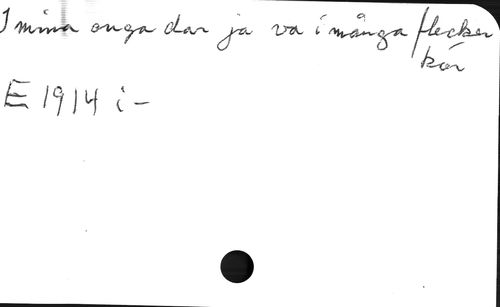 I mina onga dar ja va i många flecker
kör
E 1914 i –